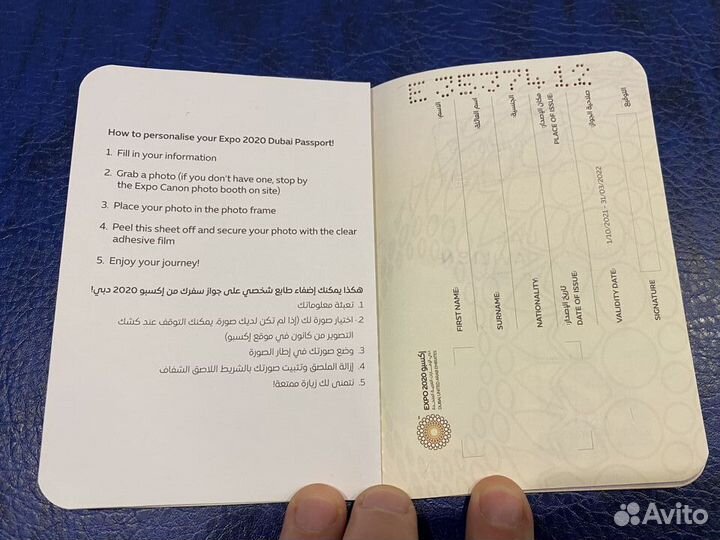 How to personalise your Expo 2020 Dubai Passport!
1. Fill in your information
2. Grab a photo (if you don't have one, stop by
the Expo Canon photo booth on site)
3. Place your photo in the photo frame
4. Peel this sheet off and secure your photo with the clear
adhesive film
5. Enjoy your journey!
هكذا يمكنك إضفاء طابع شخصي على جواز سفرك من إكسبو 2020 دبي!
1. تعبئة معلوماتك
2- اختيار صورة لك (إذا لم تكن لديك صورة، يمكنك التوقف عند كشك
التصوير من كانون في موقع إكسبو)
3. وضع صورتك في إطار الصورة
4. إزالة الملصق وتثبيت صورتك بالشريط اللاصق الشفاف
5. نتمنى لك زيارة ممتعة!
إكسبو 2020
EXPO 2020
DUBAI, UNITED ARAB EMIRATES
FIRST NAME: الاسم:
SURNAME: اسم العائلة:
NATIONALITY: الجنسية:
مكان الإصدار:
PLACE OF ISSUE:
تاريخ الإصدار:
DATE OF ISSUE:
VALIDITY DATE: 1/10/2021 - 31/03/2022 صلاحية الجواز:
SIGNATURE التوقيع:
Avito